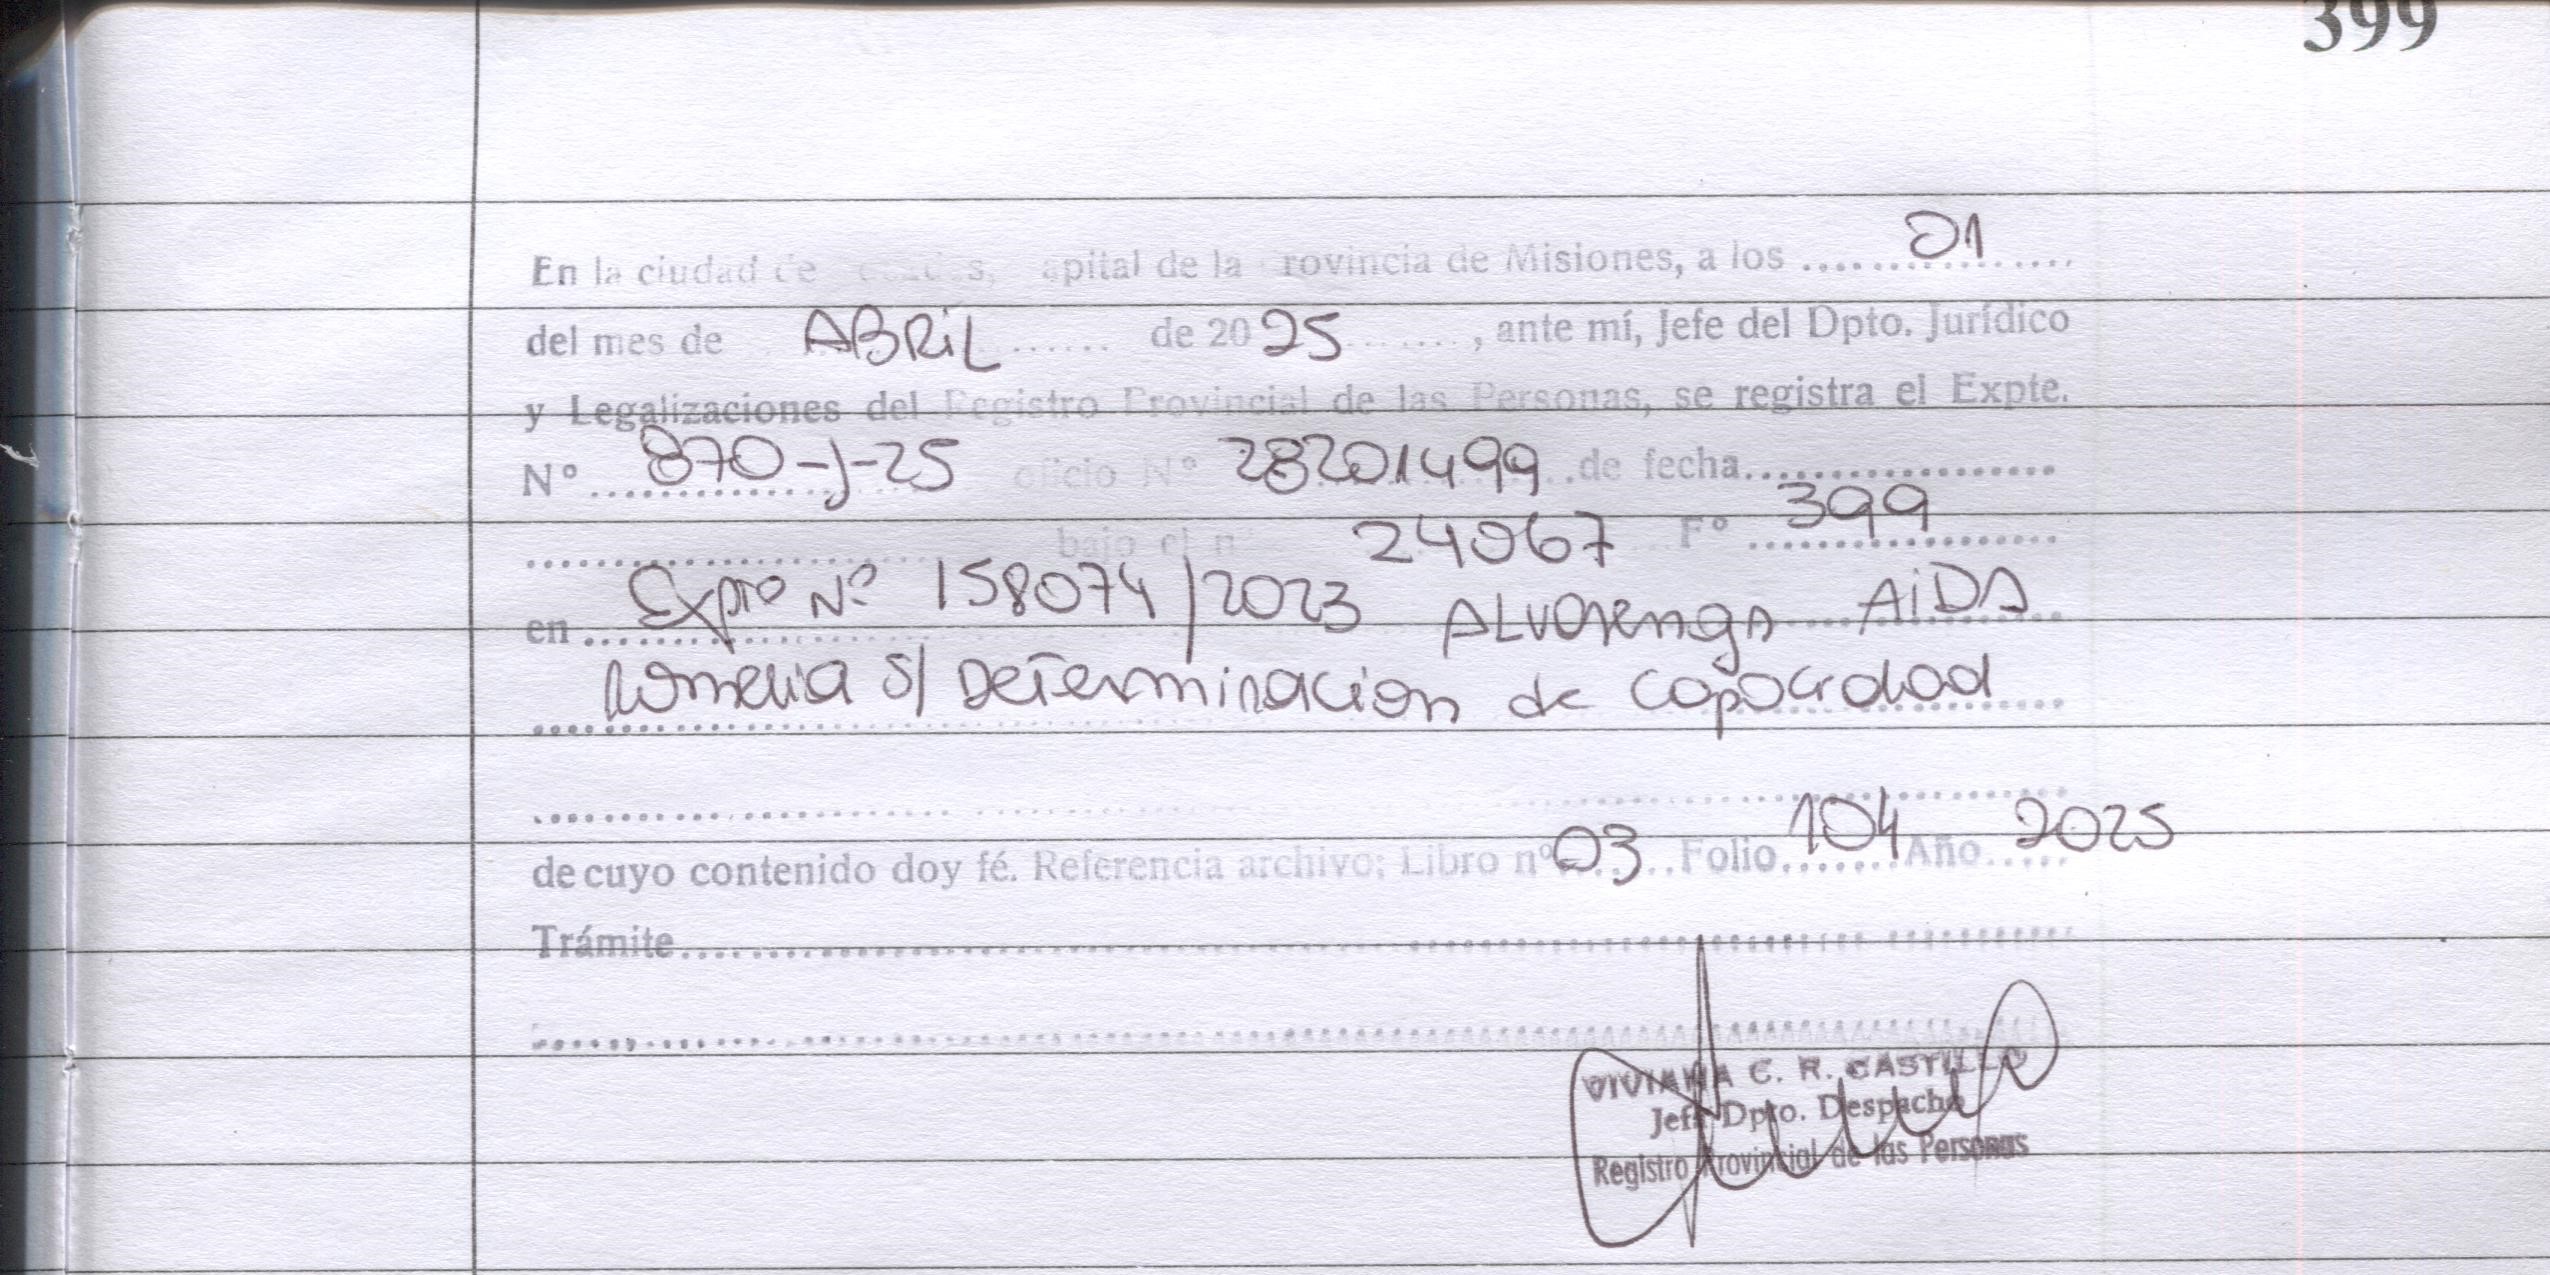 399
En la ciudad de Posadas, Capital de la Provincia de Misiones, a los ........01........
del mes de ABRIL ...... de 2025 ......, ante mí, Jefe del Dpto. Jurídico
y Legalizaciones del Registro Provincial de las Personas, se registra el Expte.
Nº 870-J-25 oficio Nº 28201499 de fecha....................
.................... bajo el nº 24067 Fº 399
en Expte Nº 158074/2023 ALVarenga AiDA
Romelia S/ DeTerminacion de capacidad
....................
de cuyo contenido doy fé. Referencia archivo; Libro nº 03 Folio 104 Año 2025
Trámite....................
....................
VIVIANA C. R. CASTILLO
Jefe Dpto. Despacho
Registro Provincial de las Personas